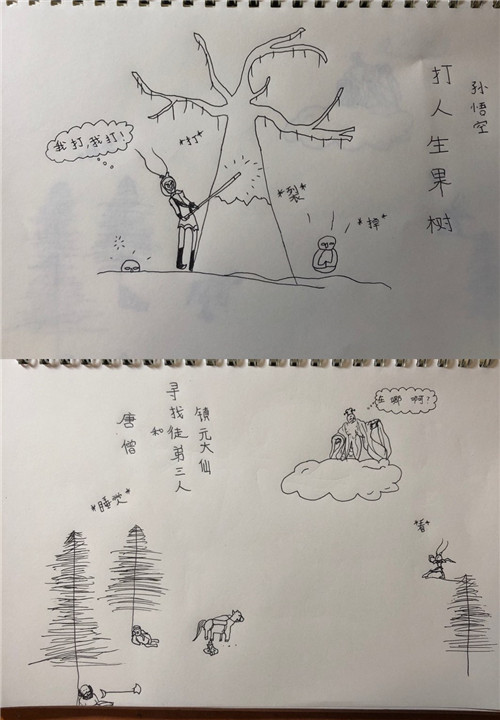 孙悟空
打人生果树
我打,我打!
*打*
*裂*
*掉*
镇元大仙
寻找徒弟三人
和
唐僧
在哪啊?
*睡觉*
*看*